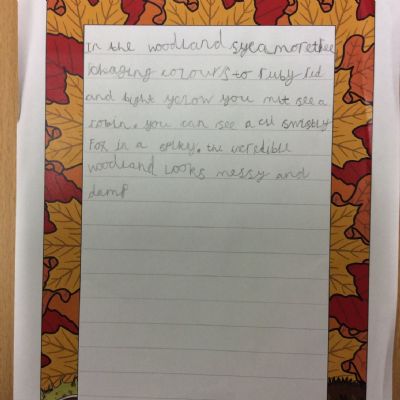 In the woodland sycamore tree
is chaging colours to ruby red
and bight yerow you mit see a
robin. you can see a
Fox in a spiky. the incredible
woodland looks messy and
damp